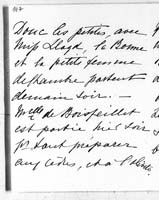 Donc les petites, avec
Miss Lloyd, la Bonne
et la petite femme
de chambre partent
demain soir. —
Mlle de Boisfeillet
est partie hier soir
pr. tout préparer
aux Cèdres, et à l'